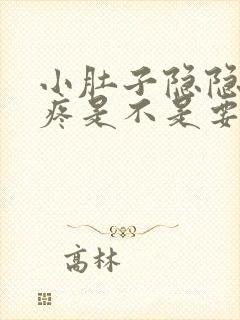 小肚子隐隐
疼是不是要
高林